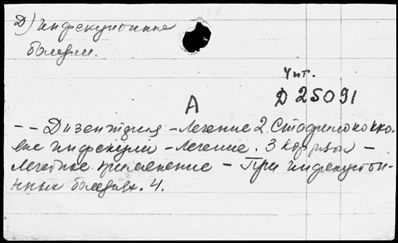 Д) Инфекционные
болезни.
Чит.
Д 25091
А
-- Дизентерия - Лечение 2. Стафилококко-
вые инфекции - Лечение. 3
Лечебное применение - При инфекцион-
ных болезнях. 4.